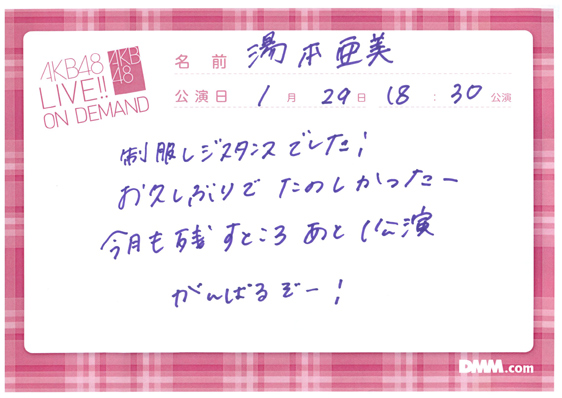 AKB48
LIVE!!
ON DEMAND
AKB
48
名前 湯本亜美
公演日 1月29日 18:30公演
制服レジスタンスでした!
お久しぶりでたのしかったー
今月も残すところあと1公演
がんばるぞー!
DMM.com